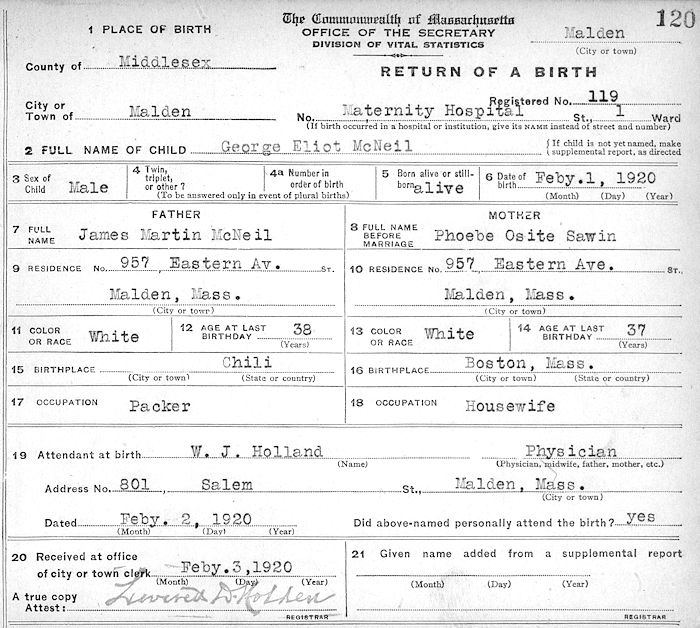 The Commonwealth of Massachusetts
OFFICE OF THE SECRETARY
DIVISION OF VITAL STATISTICS
120
Malden
(City or town)
1 PLACE OF BIRTH
County of Middlesex
RETURN OF A BIRTH
Registered No. 119
City or
Town of Malden No. Maternity Hospital St., 1 Ward
(If birth occurred in a hospital or institution, give its NAME instead of street and number)
2 FULL NAME OF CHILD George Eliot McNeil
{If child is not yet named, make
supplemental report, as directed
3 Sex of
Child Male
4 Twin,
triplet,
or other ?
4a Number in
order of birth
(To be answered only in event of plural births)
5 Born alive or still-
born alive
6 Date of
birth Feby.1, 1920
(Month) (Day) (Year)
FATHER
7 FULL
NAME James Martin McNeil
MOTHER
8 FULL NAME
BEFORE
MARRIAGE Phoebe Osite Sawin
9 RESIDENCE No. 957 Eastern Av. ST.
Malden, Mass.
(City or town)
10 RESIDENCE No. 957 Eastern Ave. ST.
Malden, Mass.
(City or town)
11 COLOR
OR RACE White
12 AGE AT LAST
BIRTHDAY 38
(Years)
13 COLOR
OR RACE White
14 AGE AT LAST
BIRTHDAY 37
(Years)
15 BIRTHPLACE Chili
(City or town) (State or country)
16 BIRTHPLACE Boston, Mass.
(City or town) (State or country)
17 OCCUPATION Packer
18 OCCUPATION Housewife
19 Attendant at birth W. J. Holland Physician
(Name) (Physician, midwife, father, mother, etc.)
Address No. 801 Salem St., Malden, Mass.
(City or town)
Dated Feby. 2, 1920 Did above-named personally attend the birth? yes
(Month) (Day) (Year)
20 Received at office
of city or town clerk Feby.3,1920
(Month) (Day) (Year)
A true copy
Attest: Leverett D. Holden
REGISTRAR
21 Given name added from a supplemental report
(Month) (Day) (Year)
REGISTRAR